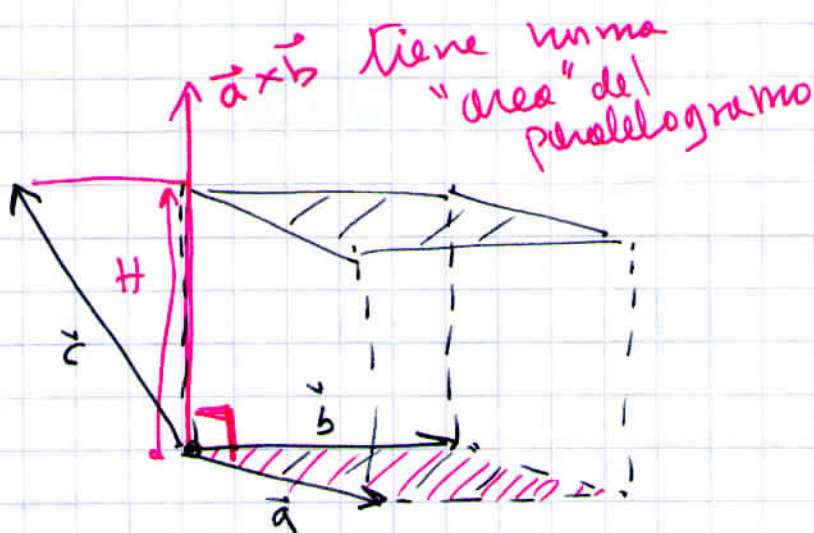 a⃗×b⃗ tiene norma
"area" del
paralelogramo
H
c⃗
b⃗
a⃗